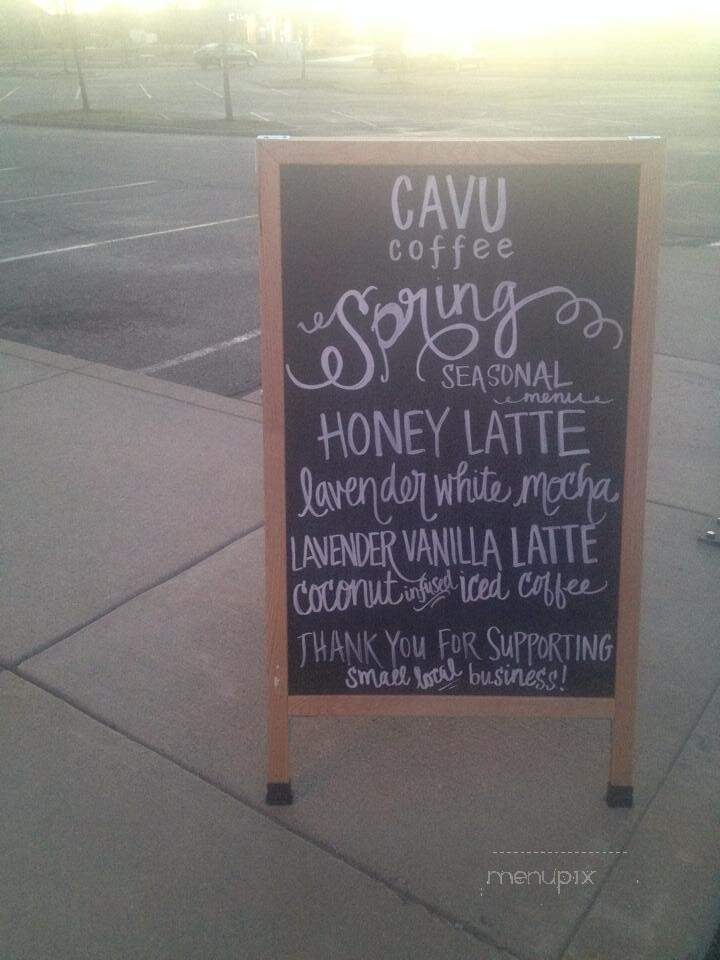 CAVU
coffee
Spring
SEASONAL
menu
HONEY LATTE
lavender white mocha
LAVENDER VANILLA LATTE
coconut infused iced coffee
THANK YOU FOR SUPPORTING
small local business!
menupix